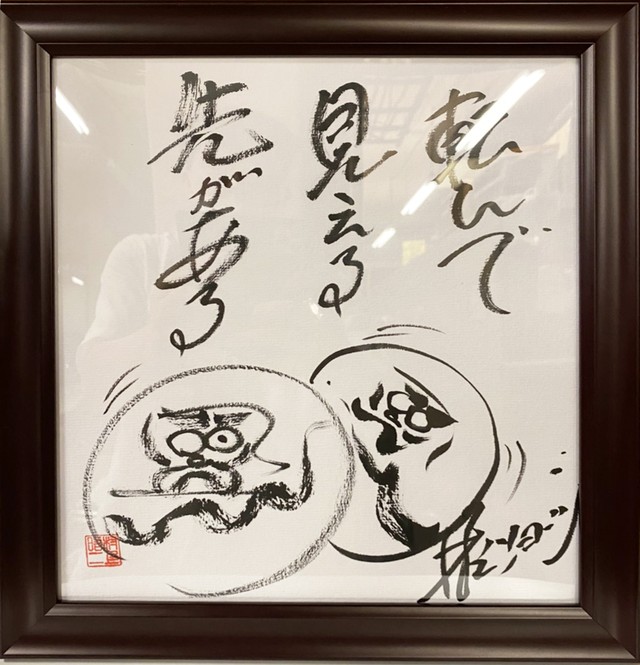 転んで
見える
先がある